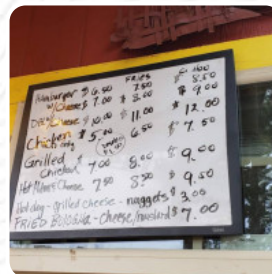 FRIES
Hamburger $6.50 7.50 $8.50
w/Cheese $7.00 $8.00 $9.00
Dbl Cheese $10.00 $11.00 $12.00
Chicken only $5.00 6.50 $7.50
Grilled Chicken $7.00 8.00 $9.00
Cheese 7.50 8.50 $9.50
Hotdog - grilled cheese - nuggets $3.00
FRIED BOLOGNA - cheese/mustard $7.00